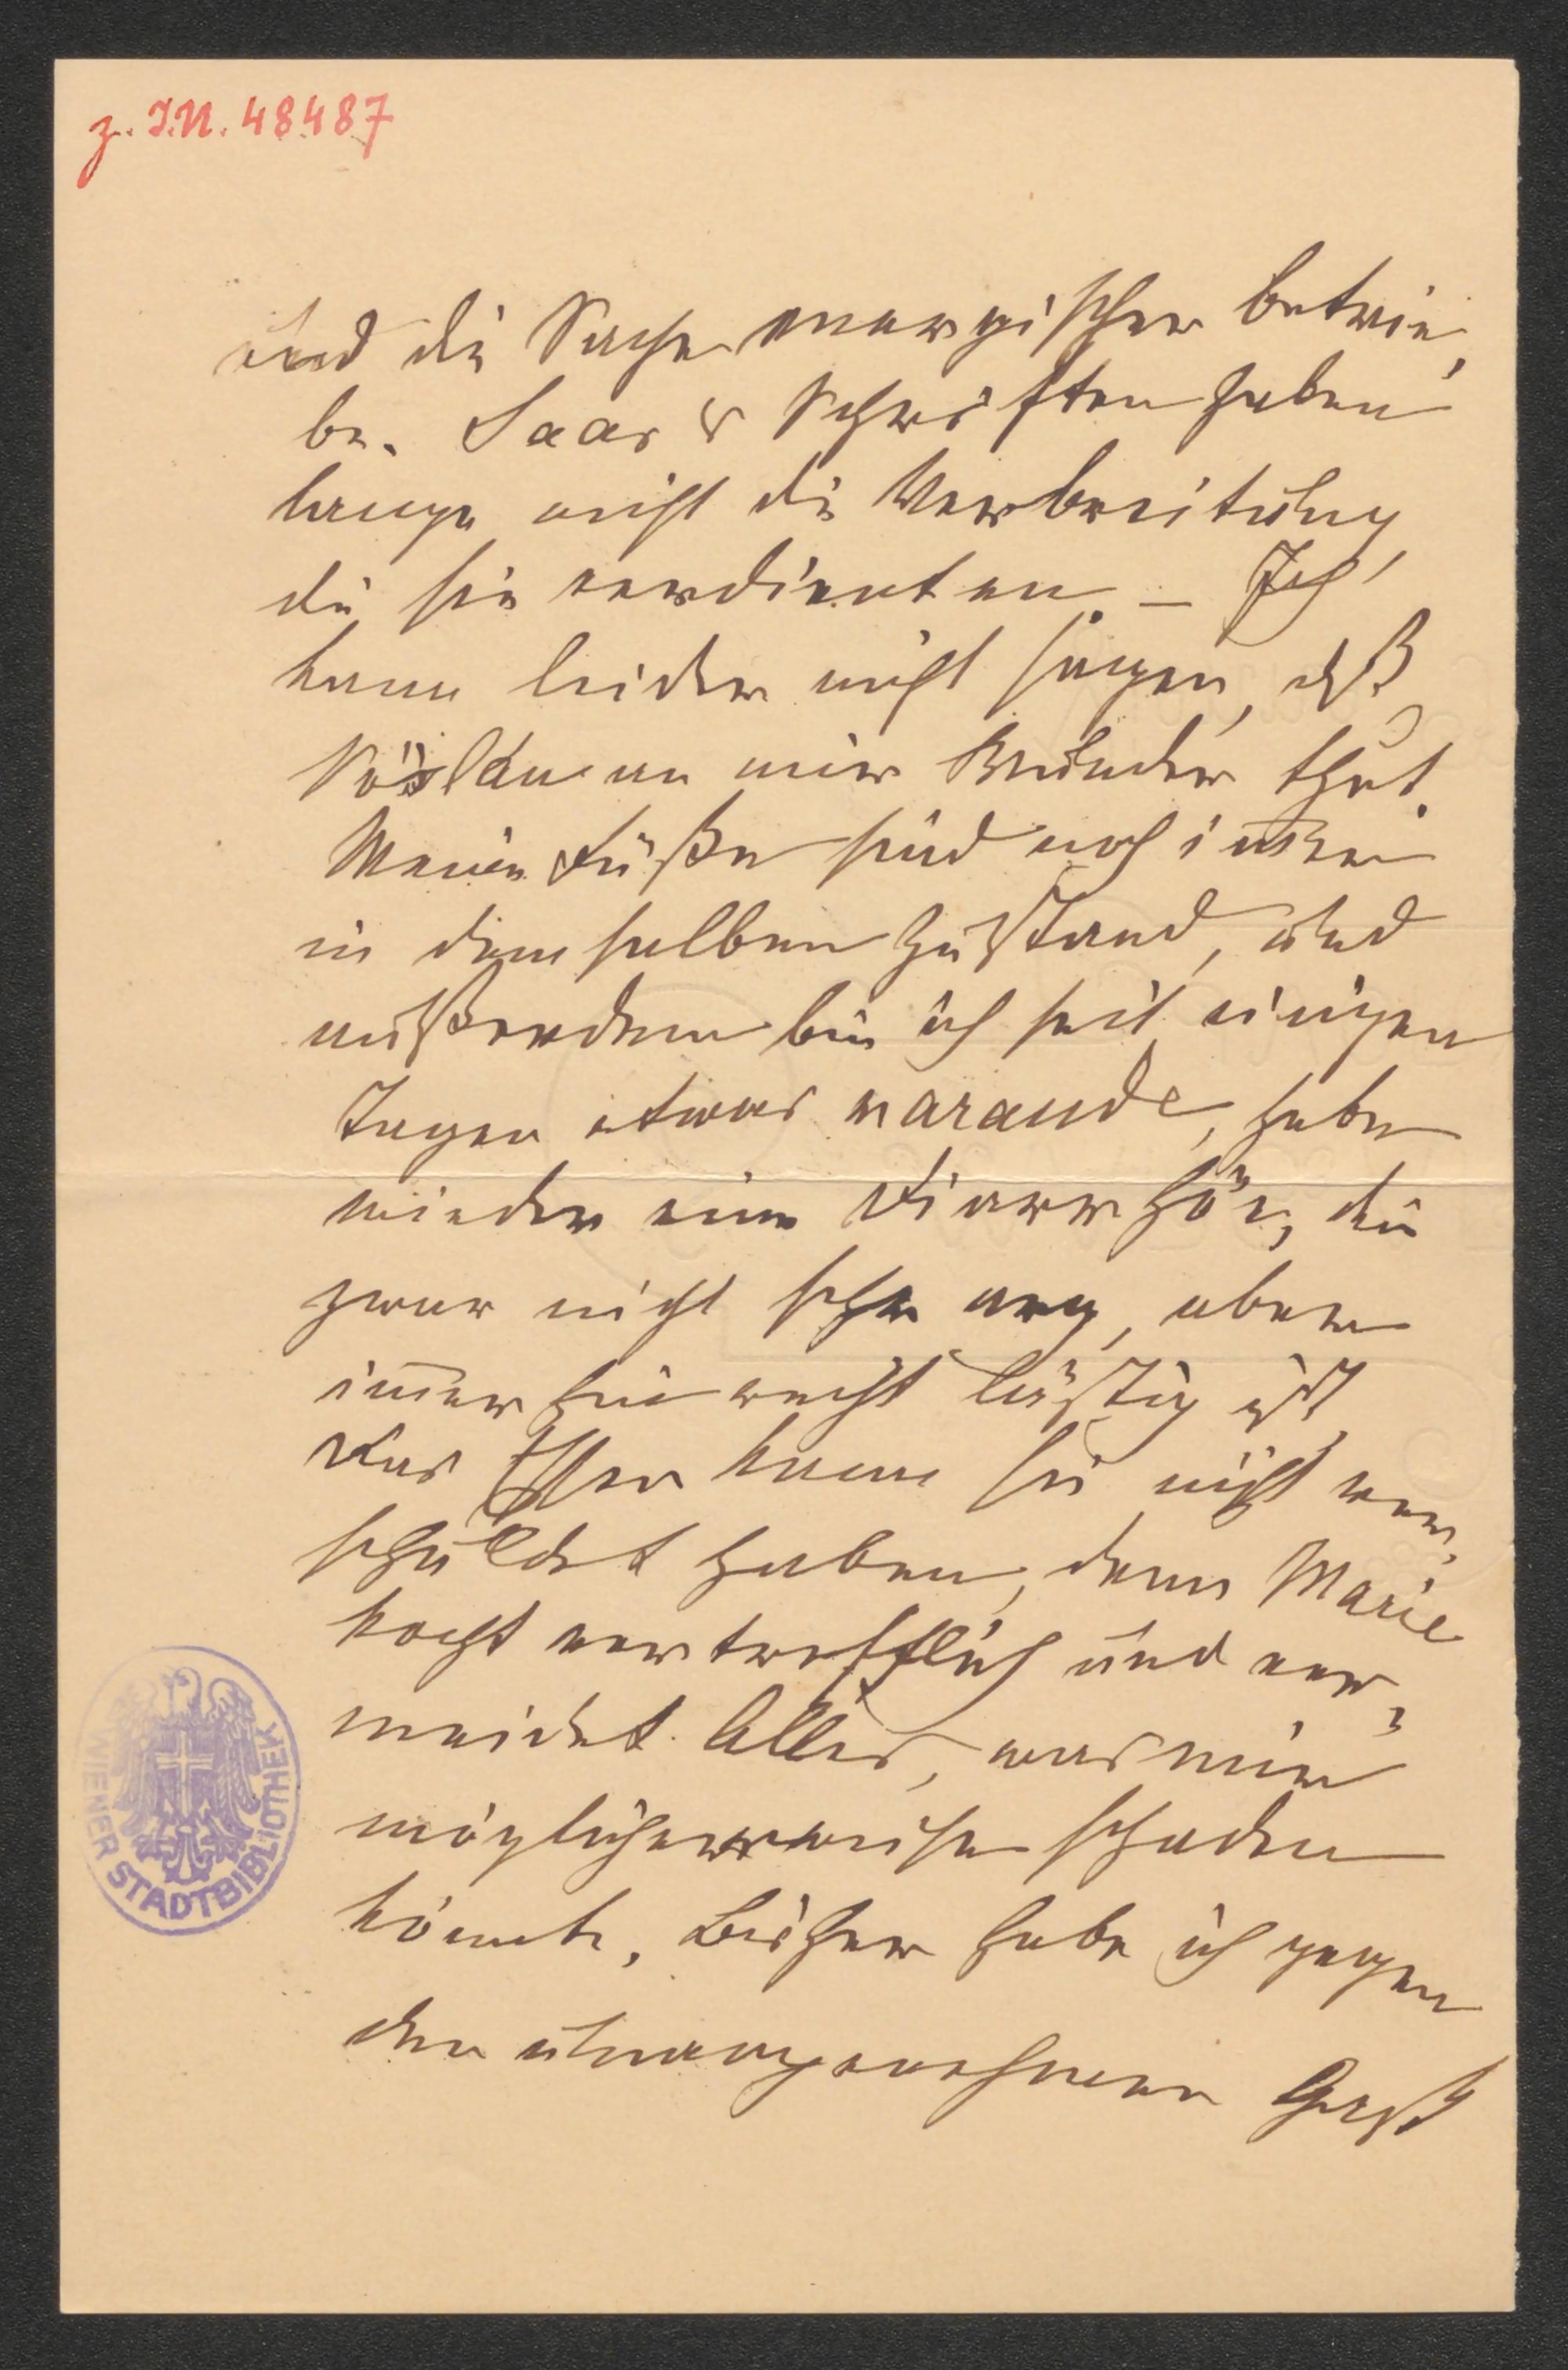 z. I.N. 48487
und die Sache energischer betrie„
be. Saar's Schriften haben
lange nicht die Verbreitung
die sie verdienten. – Ich
kann leider nicht sagen, dß
Vöslau an mir Wunder thut.
Meine Füße sind noch im̅er
in demselben Zustand, und
außerdem bin ich seit einigen
Tagen etwas marande, habe
wieder eine Diarrhöe, die
zwar nicht sehr arg, aber
im̅erhin recht lästig ist
Das Essen kann sie nicht ver„
schuldet haben, denn Marie
kocht vortrefflich und ver„
meidet Alles, was mir
möglicherweise schaden
könnte. Bisher habe ich gegen
den unangenehmen Gast
WIENER STADTBIBLIOTHEK